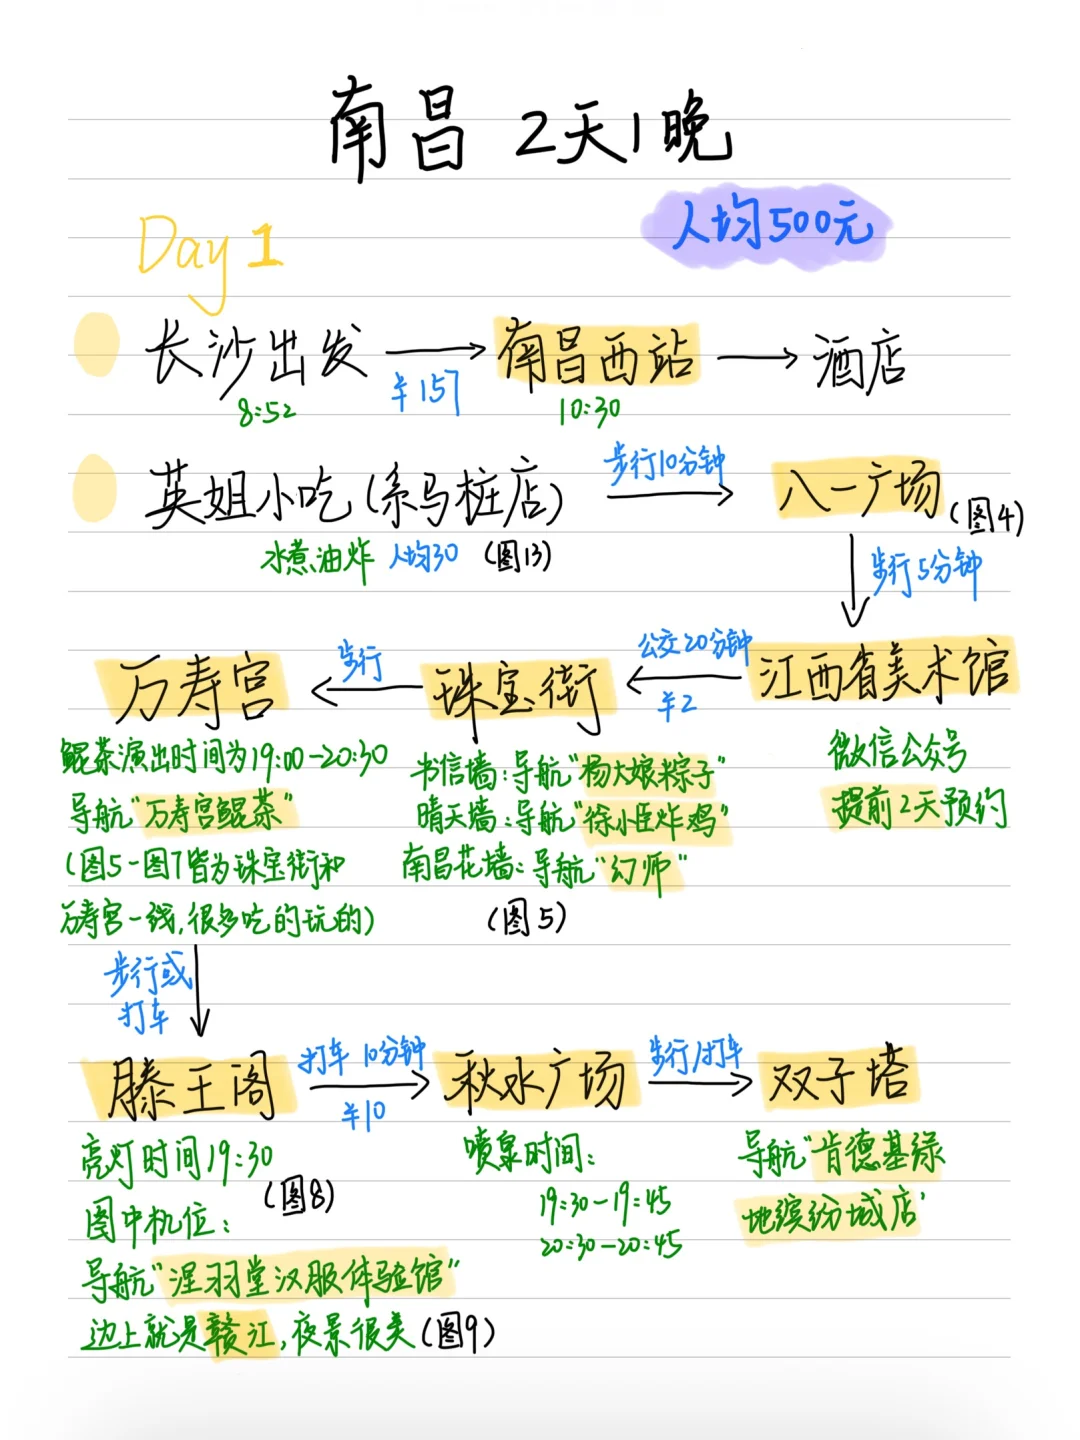 南昌 2天1晚
人均500元
Day 1
长沙出发 → 南昌西站 → 酒店
8:52 ¥157 10:30
步行10分钟
英姐小吃(系马桩店) → 八一广场(图4)
水煮油炸 人均30 (图13)
步行5分钟
步行 公交20分钟
万寿宫 ← 珠宝街 ← 江西省美术馆
¥2
鲲茶演出时间为19:00-20:30
导航"万寿宫鲲茶"
(图5-图7皆为珠宝街和
万寿宫一线,很多吃的玩的)
书信墙:导航"杨大娘粽子"
晴天墙:导航"徐小臣炸鸡"
南昌花墙:导航"幻师"
(图5)
微信公众号
提前2天预约
步行或
打车
打车 10分钟 步行/打车
滕王阁 → 秋水广场 → 双子塔
¥10
亮灯时间19:30
(图8)
图中机位:
导航"涅羽堂汉服体验馆"
边上就是赣江,夜景很美(图9)
喷泉时间:
19:30-19:45
20:30-20:45
导航"肯德基绿
地缤纷城店"